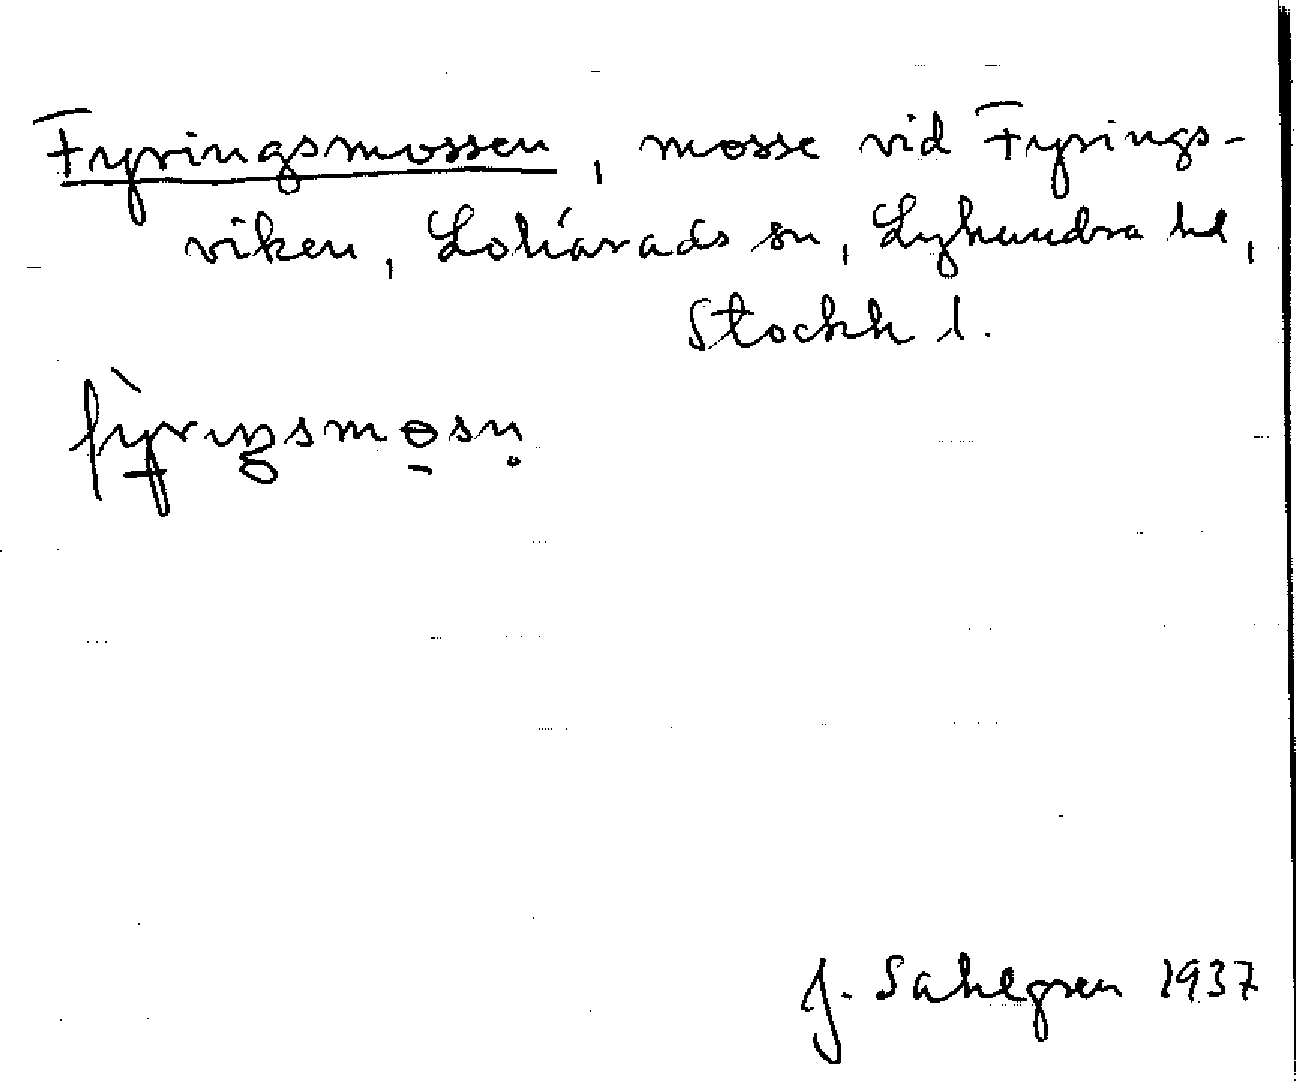 Fyringsmossen, mosse vid Fyrings-
viken, Lohärads sn, Lyhundra hd,
Stockh l.
fỳriŋsmosn̥
J. Sahlgren 1937